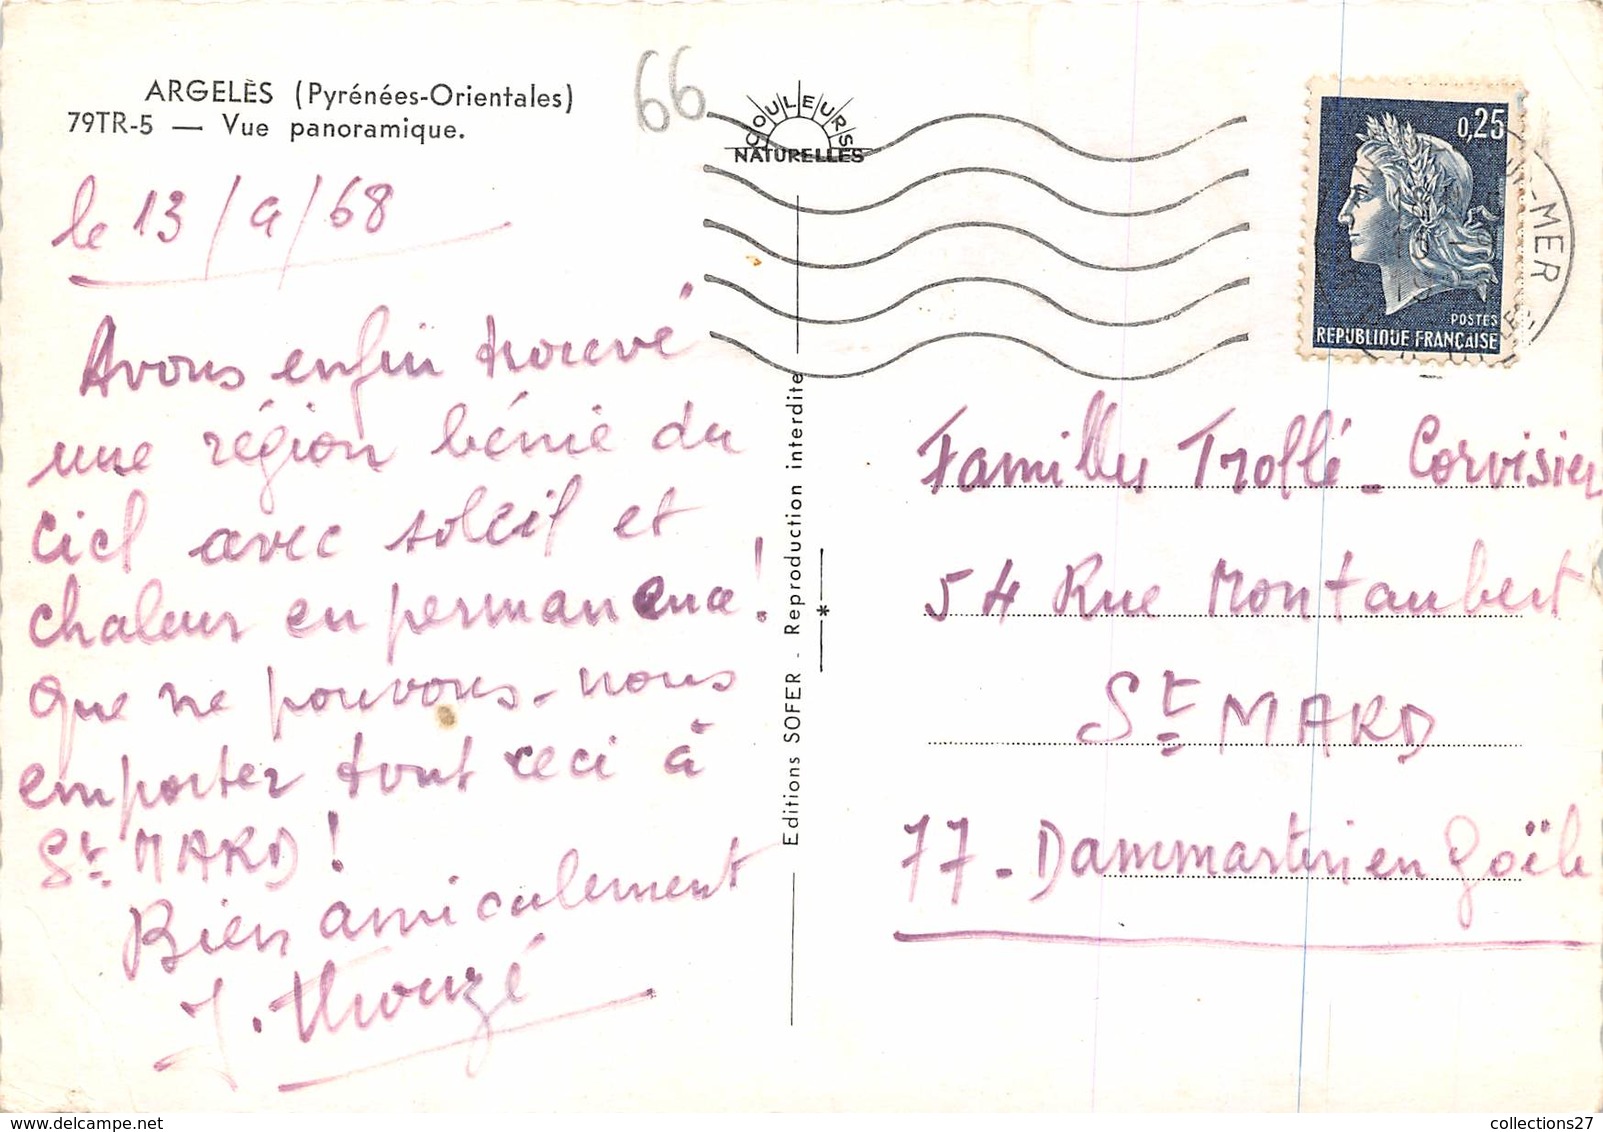 ARGELÈS (Pyrénées-Orientales)
79TR-5 — Vue panoramique.
66
COULEURS
NATURELLES
0,25
POSTES
REPUBLIQUE FRANÇAISE
-MER
le 13/9/68
Avons enfin trouvé
une région bénie du
ciel avec soleil et
chaleur en permanence!
que ne pouvons-nous
emporter tout ceci à
St. MARD!
Bien amicalement
J. Thouzé
Editions SOFER - Reproduction interdite
Familles Trollé - Corvisier
54 Rue Montaubert
St MARD
77 - Dammartin en Goële
collections27